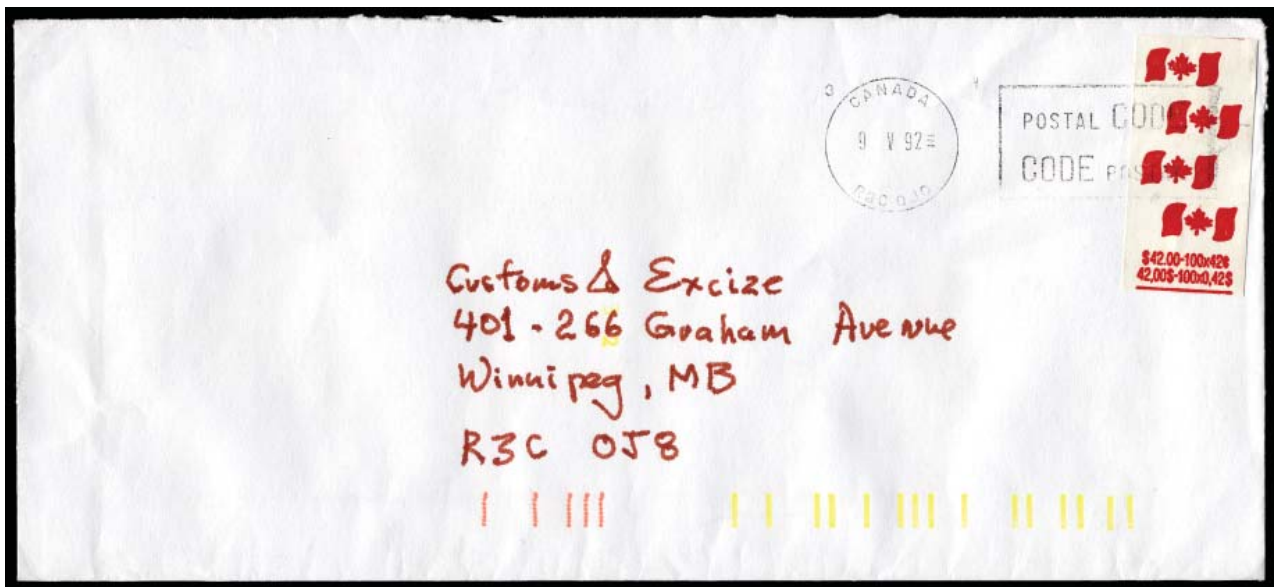 CANADA
9 V 92
R3C 0J0
POSTAL CODE
CODE
$42.00-100x42¢
42,00$-100x0,42$
Customs & Excize
401 - 266 Graham Avenue
Winnipeg, MB
R3C 0J8